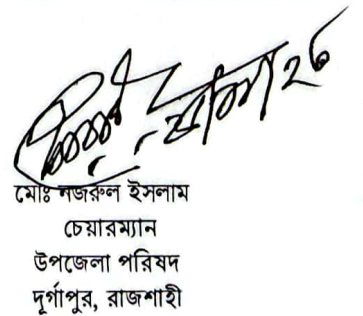 মোঃ নজরুল ইসলাম
চেয়ারম্যান
উপজেলা পরিষদ
দূর্গাপুর, রাজশাহী